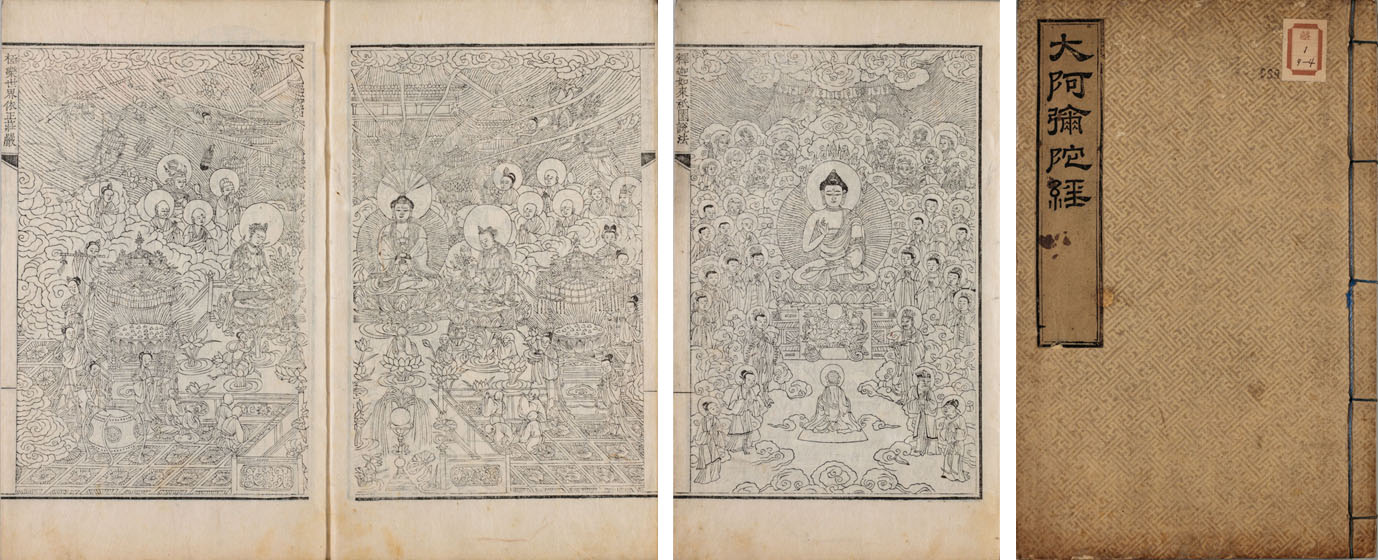 極樂世界依正莊嚴
釋迦如來祇園說法
大阿彌陀經
1
9-4